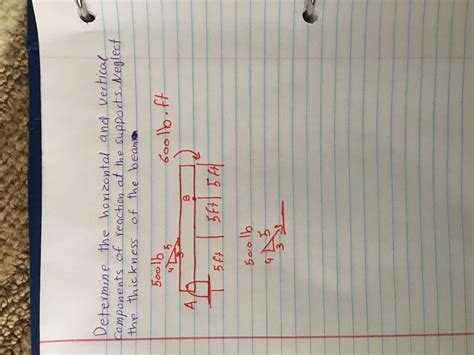 Determine the horizontal and vertical
components of reaction at the supports. Neglect
the thickness of the beam.
500lb
600lb.ft
4 5
3
A
B
5ft 5ft 5ft
500lb
4 5
3